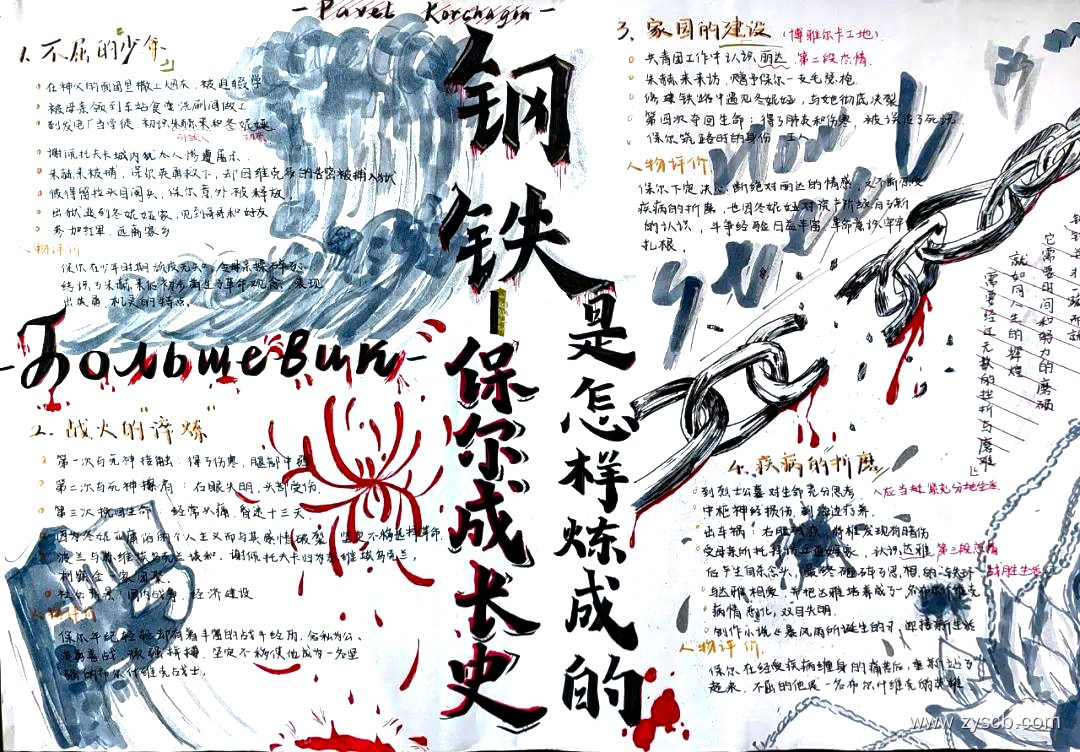 - Pavel Korchagin -
钢铁是怎样炼成的
保尔成长史
1. 不屈的"少年"
在神父的面团里撒上烟灰,被迫辍学
被母亲领到车站食堂洗刷间做工
到发电厂当学徒,初识朱赫来和冬妮娅
谢佩托夫卡城内犹太人惨遭屠杀
朱赫来被捕,保尔英勇救下,却因维克多的告密被捕入狱
彼得留拉头目阅兵,保尔意外被释放
出狱逃到冬妮娅家,见到哥哥和好友
参加红军,远离家乡
人物评价
出英勇、机灵的特点。
-Большевик-
2. 战火的"淬炼"
第一次与死神接触:得了伤寒,腿部中
第二次与死神擦肩:右眼失明,头部受伤.
第三次挽回生命 经常头痛,昏迷十三天.
经济建设
人物评价
保尔年纪轻轻却有着丰富的战斗经历,公私分公、
英勇善战、顽强拼搏、坚定不移使他成为一名坚
强的布尔什维克战士.
3. 家园的建设(博雅尔卡工地)
共青团工作中认识丽达 第二段恋情
朱赫来来访,赠予保尔一支毛瑟枪
修建铁路中遇见冬妮娅,与她彻底决裂
第四次夺回生命:得了肺炎和伤寒,被误传了死讯
保尔筑路时的身份:工人
人物评价
保尔下定决心,断绝对丽达的情感,又不断忍受
疾病的折磨,也因冬妮娅对
的认识,斗争经验日益丰富,革命意识牢牢
扎根.
它需要时间和努力的磨砺
就如同人生的辉煌
需要经过无数的挫折与磨难
4. 疾病的折磨
到烈士公墓对生命充分思考. 应当 充分地生活
中枢神经损伤,到 疗养.
出车祸:右腿残疾,脊椎发现有暗伤
认识达雅 第三段恋情
与达雅相爱,并把达雅培养成了一名布尔什维克
病情恶化,双目失明.
创作小说《暴风雨所诞生的》,迎接新生活
人物评价
保尔在经受疾病缠身的痛苦后,重新站了
起来,不屈的他是一名布尔什维克的英雄
www.zyscb.com